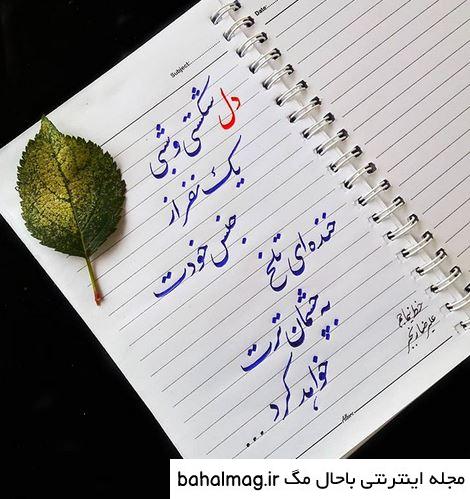 Subject:
Date:
دل شکستی و شبی
یک نفر از
جنس خودت
خنده‌ای تلخ
به چشمان ترت
خواهد کرد ...
خط نمایم
علیرضا
مجله اینترنتی باحال مگ bahalmag.ir